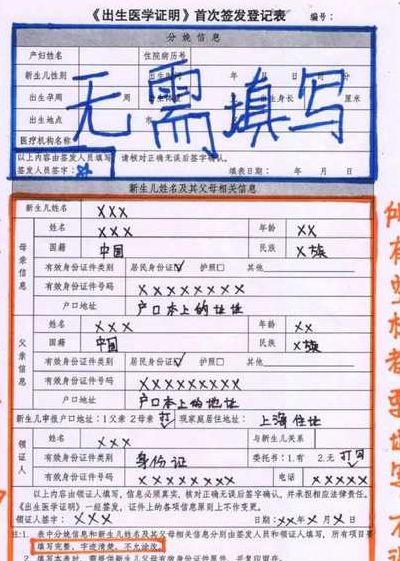 《出生医学证明》首次签发登记表 编号：
分娩信息
产妇姓名 住院病历号
新生儿性别 月 日 时 分
出生孕周 周 身长 厘米
出生地点
医疗机构名称
无需填写
以上内容由签发人员填写，请核对正确无误后签字确认。
签发人员签字： 填表日期： 年 月 日
新生儿姓名及其父母相关信息
新生儿姓名 XXX
母亲信息
姓名 XXX 年龄 XX
国籍 中国 民族 X族
有效身份证件类别 居民身份证☑ 护照□ 其他
有效身份证件号码 XXXXXXXXX
户口地址 户口本上的地址
父亲信息
姓名 XXX 年龄 XX
国籍 中国 民族 X族
有效身份证件类别 居民身份证☑ 护照□ 其他
有效身份证件号码 XXXXXXXXX
户口地址 户口本上的地址
新生儿申报户口地址：1父亲 2母亲 打√ 现家庭居住地址： 上海住址
领证人
姓名 XXX 与新生儿关系
有效身份证件类别 身份证 委托书：1.有 2.无 打√
有效身份证件号码 XXXXXXX 电话 XXXXX
以上内容由领证人填写，信息必须真实，核对正确无误后签字确认，并承担相应法律责任。
《出生医学证明》一经签发，证件上的各项信息原则上不作变更。
领证人签字： XXX 日期：XX年X月XX日
注:1. 表中分娩信息和新生儿姓名及其父母相关信息分别由签发人员和领证人填写，所有项目要
填写完整、字迹清楚、不允涂改。
所有空格都要填写